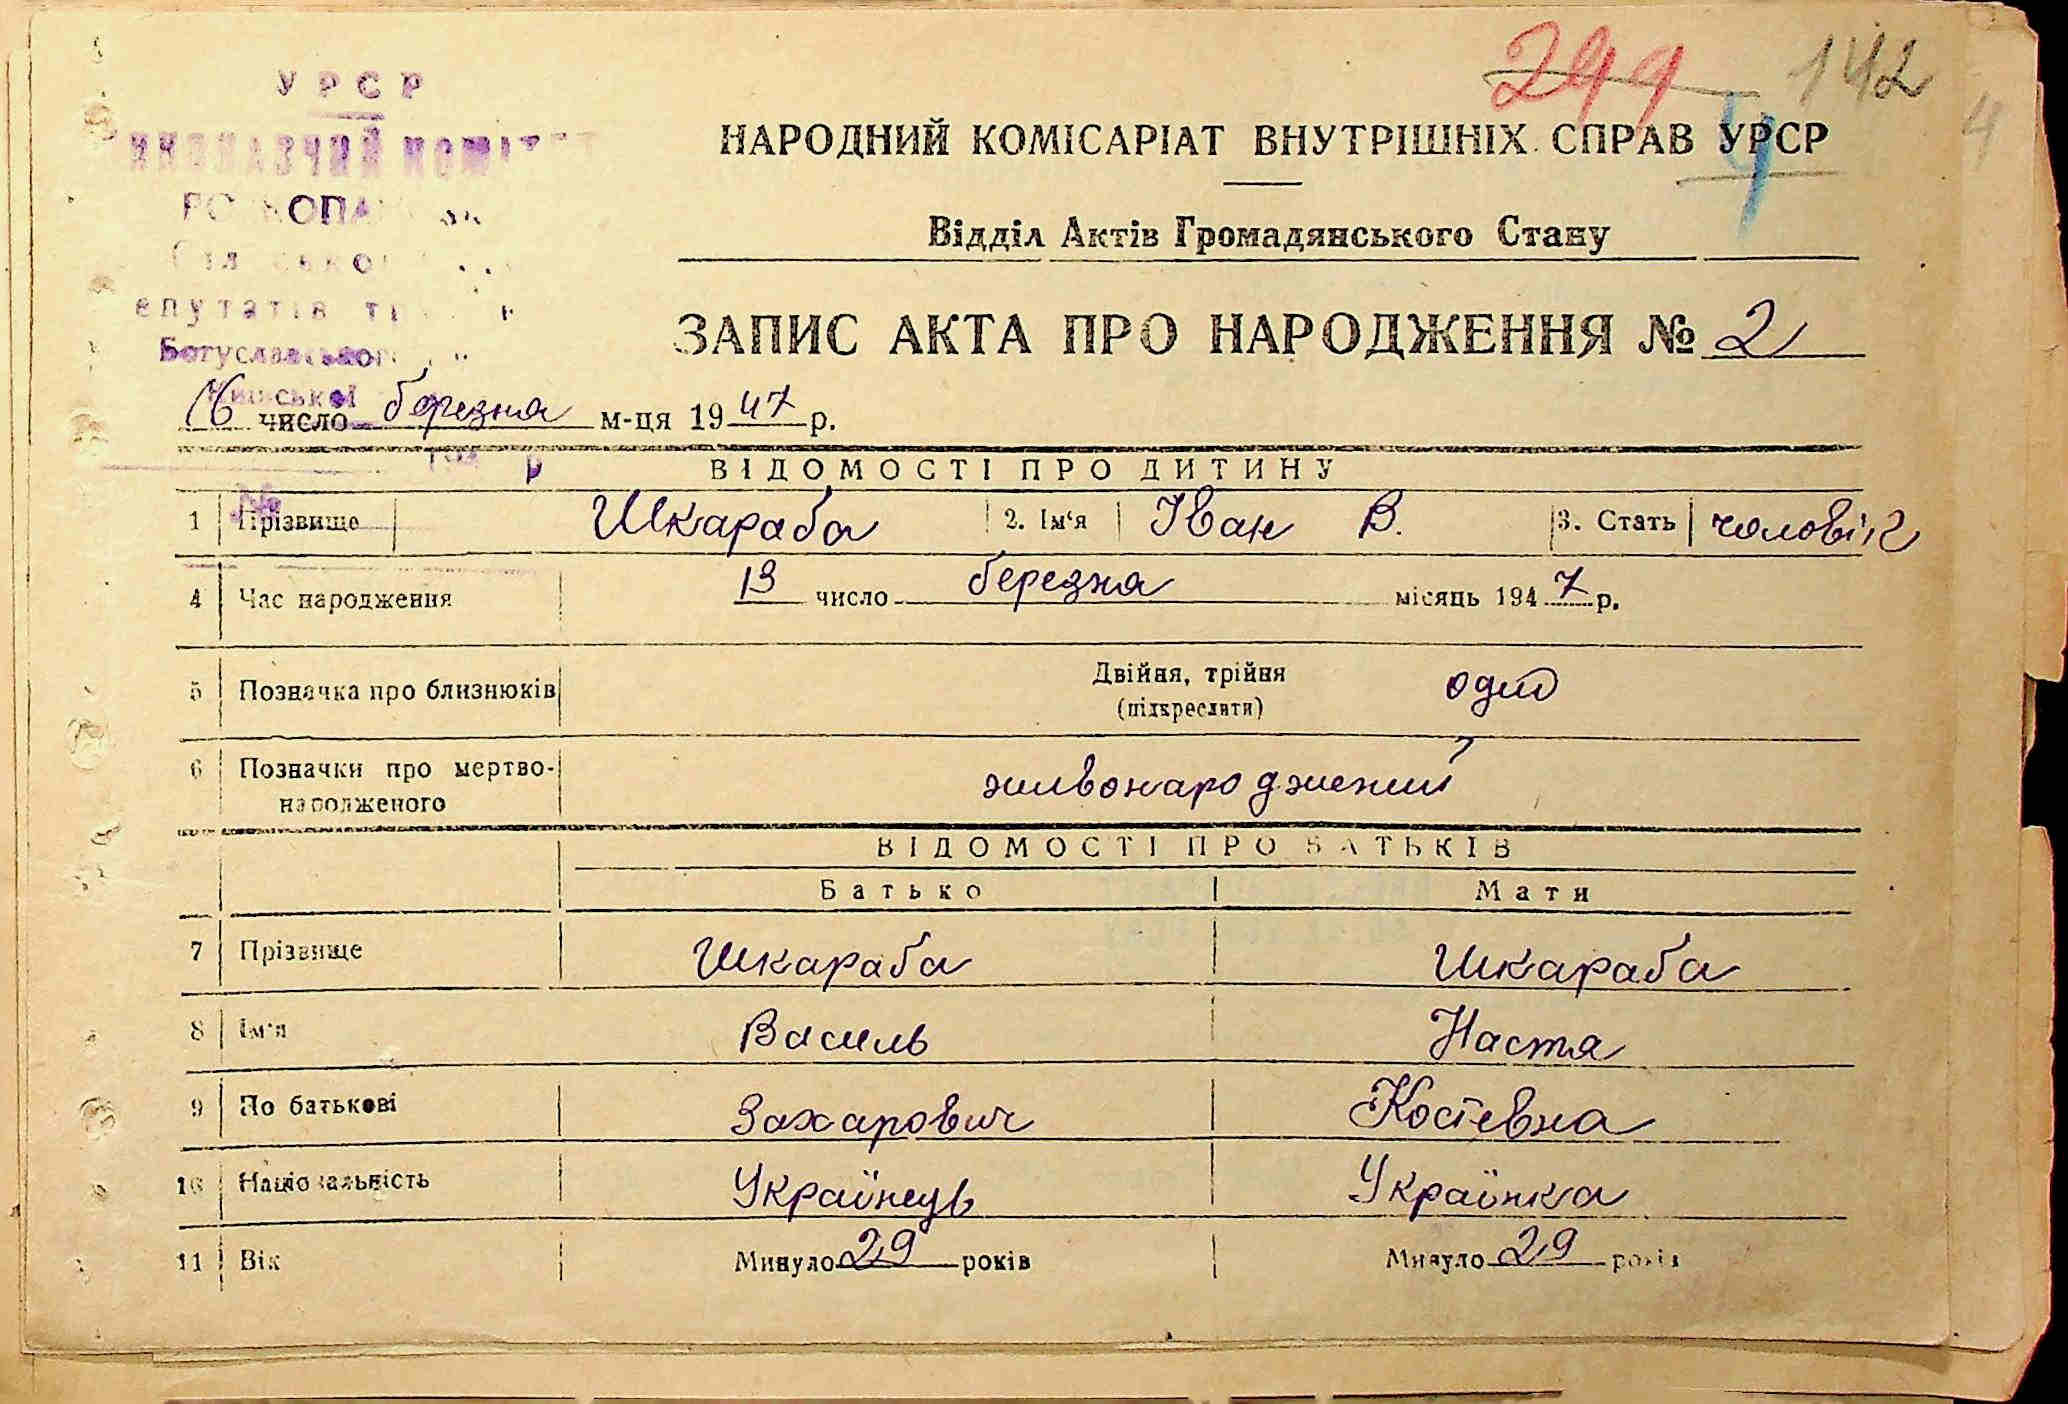 299 142
4
4
УРСР
НАРОДНИЙ КОМІСАРІАТ ВНУТРІШНІХ СПРАВ УРСР
Відділ Актів Громадянського Стану
Богуславського
ЗАПИС АКТА ПРО НАРОДЖЕННЯ № 2
16 число березня м-ця 1947 р.
ВІДОМОСТІ ПРО ДИТИНУ
№
1 Прізвище Шкараба 2. Ім'я Іван В. 3. Стать чоловік
4 Час народження 13 число березня місяць 1947 р.
5 Позначка про близнюків Двійня, трійня один
(підкреслити)
6 Позначки про мертво- живонароджений
народженого
ВІДОМОСТІ ПРО БАТЬКІВ
Батько Мати
7 Прізвище Шкараба Шкараба
8 Ім'я Василь Настя
9 По батькові Захарович Костевна
10 Національність Українець Українка
11 Вік Минуло 29 років Минуло 29 років